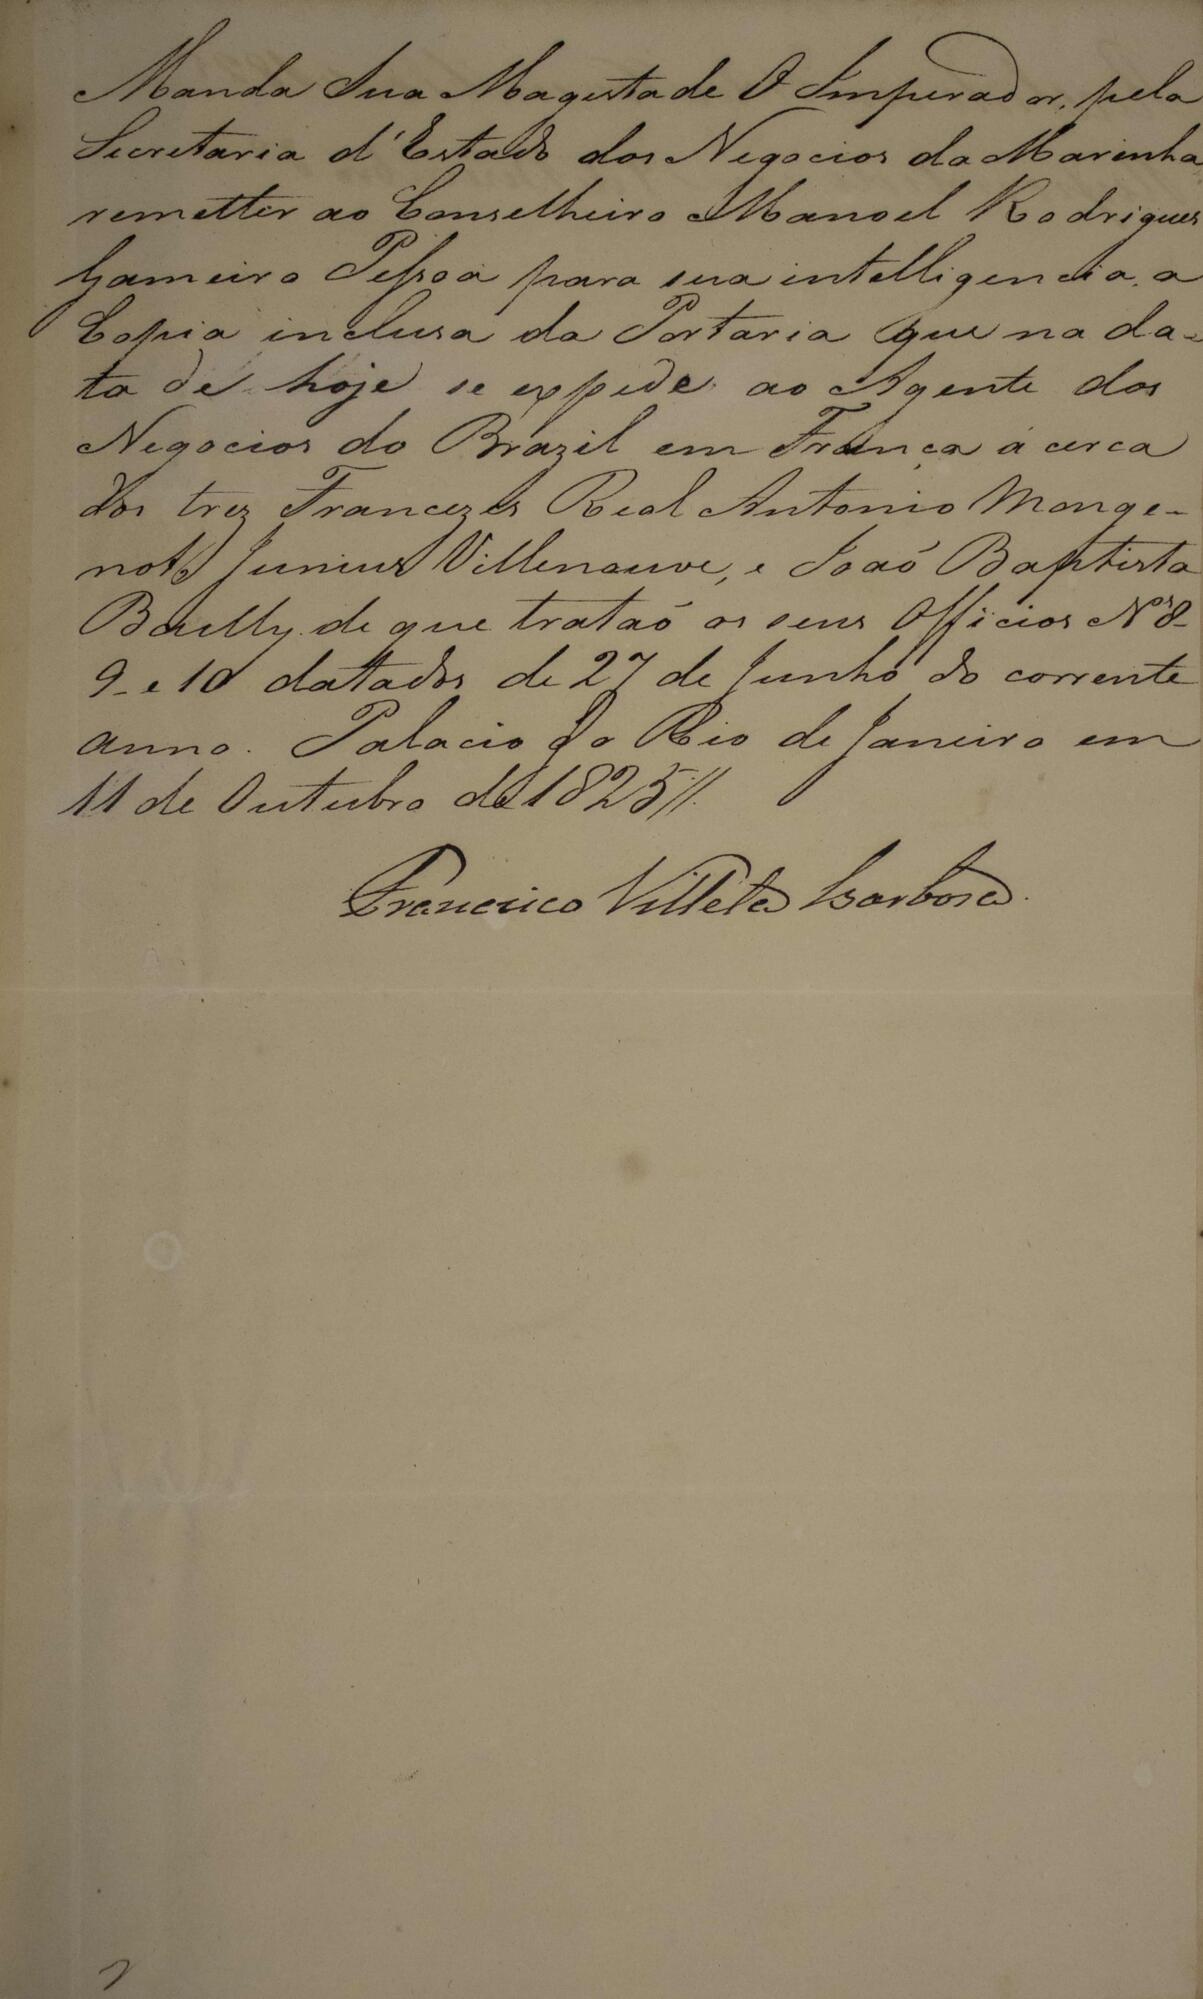 Manda Sua Magestade O Imperador, pela
Secretaria d'Estado dos Negocios da Marinha
remetter ao Conselheiro Manoel Rodrigues
Gameiro Pessoa para sua intelligencia, a
Copia inclusa da Portaria que na da-
ta de hoje se expede ao Agente dos
Negocios do Brazil em França á cerca
dos trez Francezes Real Antonio Monge-
not, Junius Villenauve, e João Baptista
Bailly de que trataõ os seus Officios Nos 8-
9- e 10 datados de 27 de Junho do corrente
anno. Palacio do Rio de Janeiro em
11 de Outubro de 1825//
Francisco Villela Barbosa.